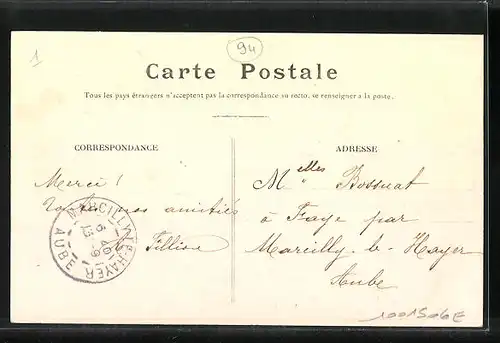 1
94
Carte Postale
Tous les pays étrangers n'acceptent pas la correspondance au recto, se renseigner à la poste.
CORRESPONDANCE
ADRESSE
Merci !
Toutes nos amitiés
Fillion
MARCILLY-LE-HAYER
AUBE
Melles Bossuat
à Faye par
Marcilly-le-Hayer
Aube
1001506E